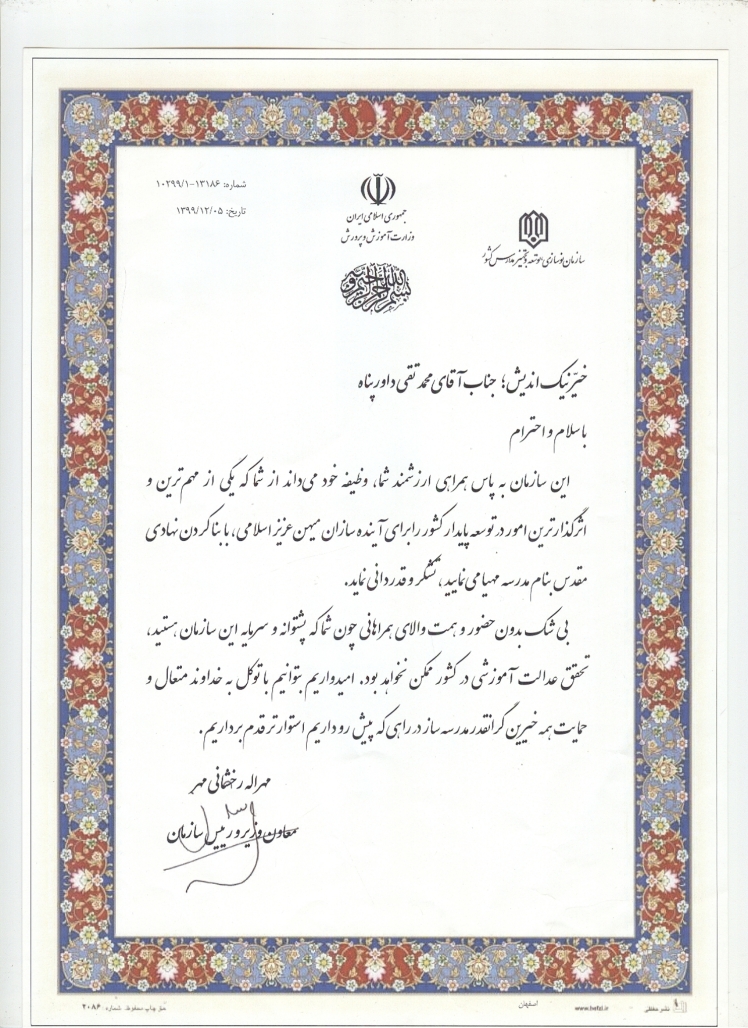 شماره: ۱۳۱۸۶-۱۰۲۹۹/۱
تاریخ: ۱۳۹۹/۱۲/۰۵
جمهوری اسلامی ایران
وزارت آموزش و پرورش
سازمان نوسازی، توسعه و تجهیز مدارس کشور
بسم الله الرحمن الرحیم
خیّر نیک اندیش؛ جناب آقای محمد تقی داورپناه
با سلام و احترام
این سازمان به پاس همراهی ارزشمند شما، وظیفه خود می‌داند از شما که یکی از مهم‌ترین و
اثرگذارترین امور در توسعه پایدار کشور را برای آینده سازان میهن عزیز اسلامی، با بنا کردن نهادی
مقدس بنام مدرسه مهیا می نمایید، تشکر و قدردانی نماید.
بی شک بدون حضور و همت والای همراهانی چون شما که پشتوانه و سرمایه این سازمان هستید،
تحقق عدالت آموزشی در کشور ممکن نخواهد بود. امیدواریم بتوانیم با توکل به خداوند متعال و
حمایت همه خیرین گرانقدر مدرسه ساز در راهی که پیش رو داریم استوارتر قدم برداریم.
مهراله رخشانی مهر
معاون وزیر و رییس سازمان
حق چاپ محفوظ. شماره: ۲۰۸۶
اصفهان